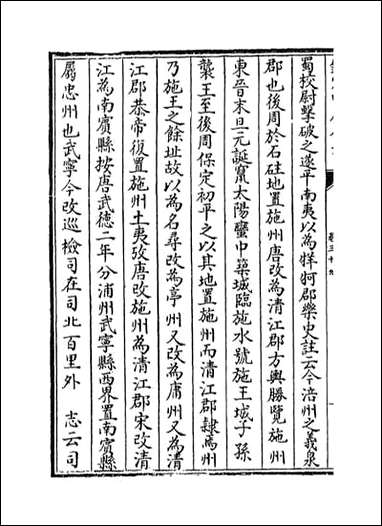 蜀校尉擊破之遂平南夷以為牂牁郡樂史註云今涪州之義泉
郡也後周於石砫地置施州唐改為清江郡方輿勝覽施州
東晉末旦元誕竄太陽蠻中築城臨施水號施王城子孫
襲王至後周保定初平之以其地置施州而清江郡隸焉州
乃施王之餘址故以為名尋改為亭州又改為庸州又為清
江郡恭帝復置施州土夷攷唐改施州為清江郡宋改清
江為南賓縣按唐武德二年分浦州武寧縣西界置南賓縣
屬忠州也武寧今改巡檢司在司北百里外 志云司